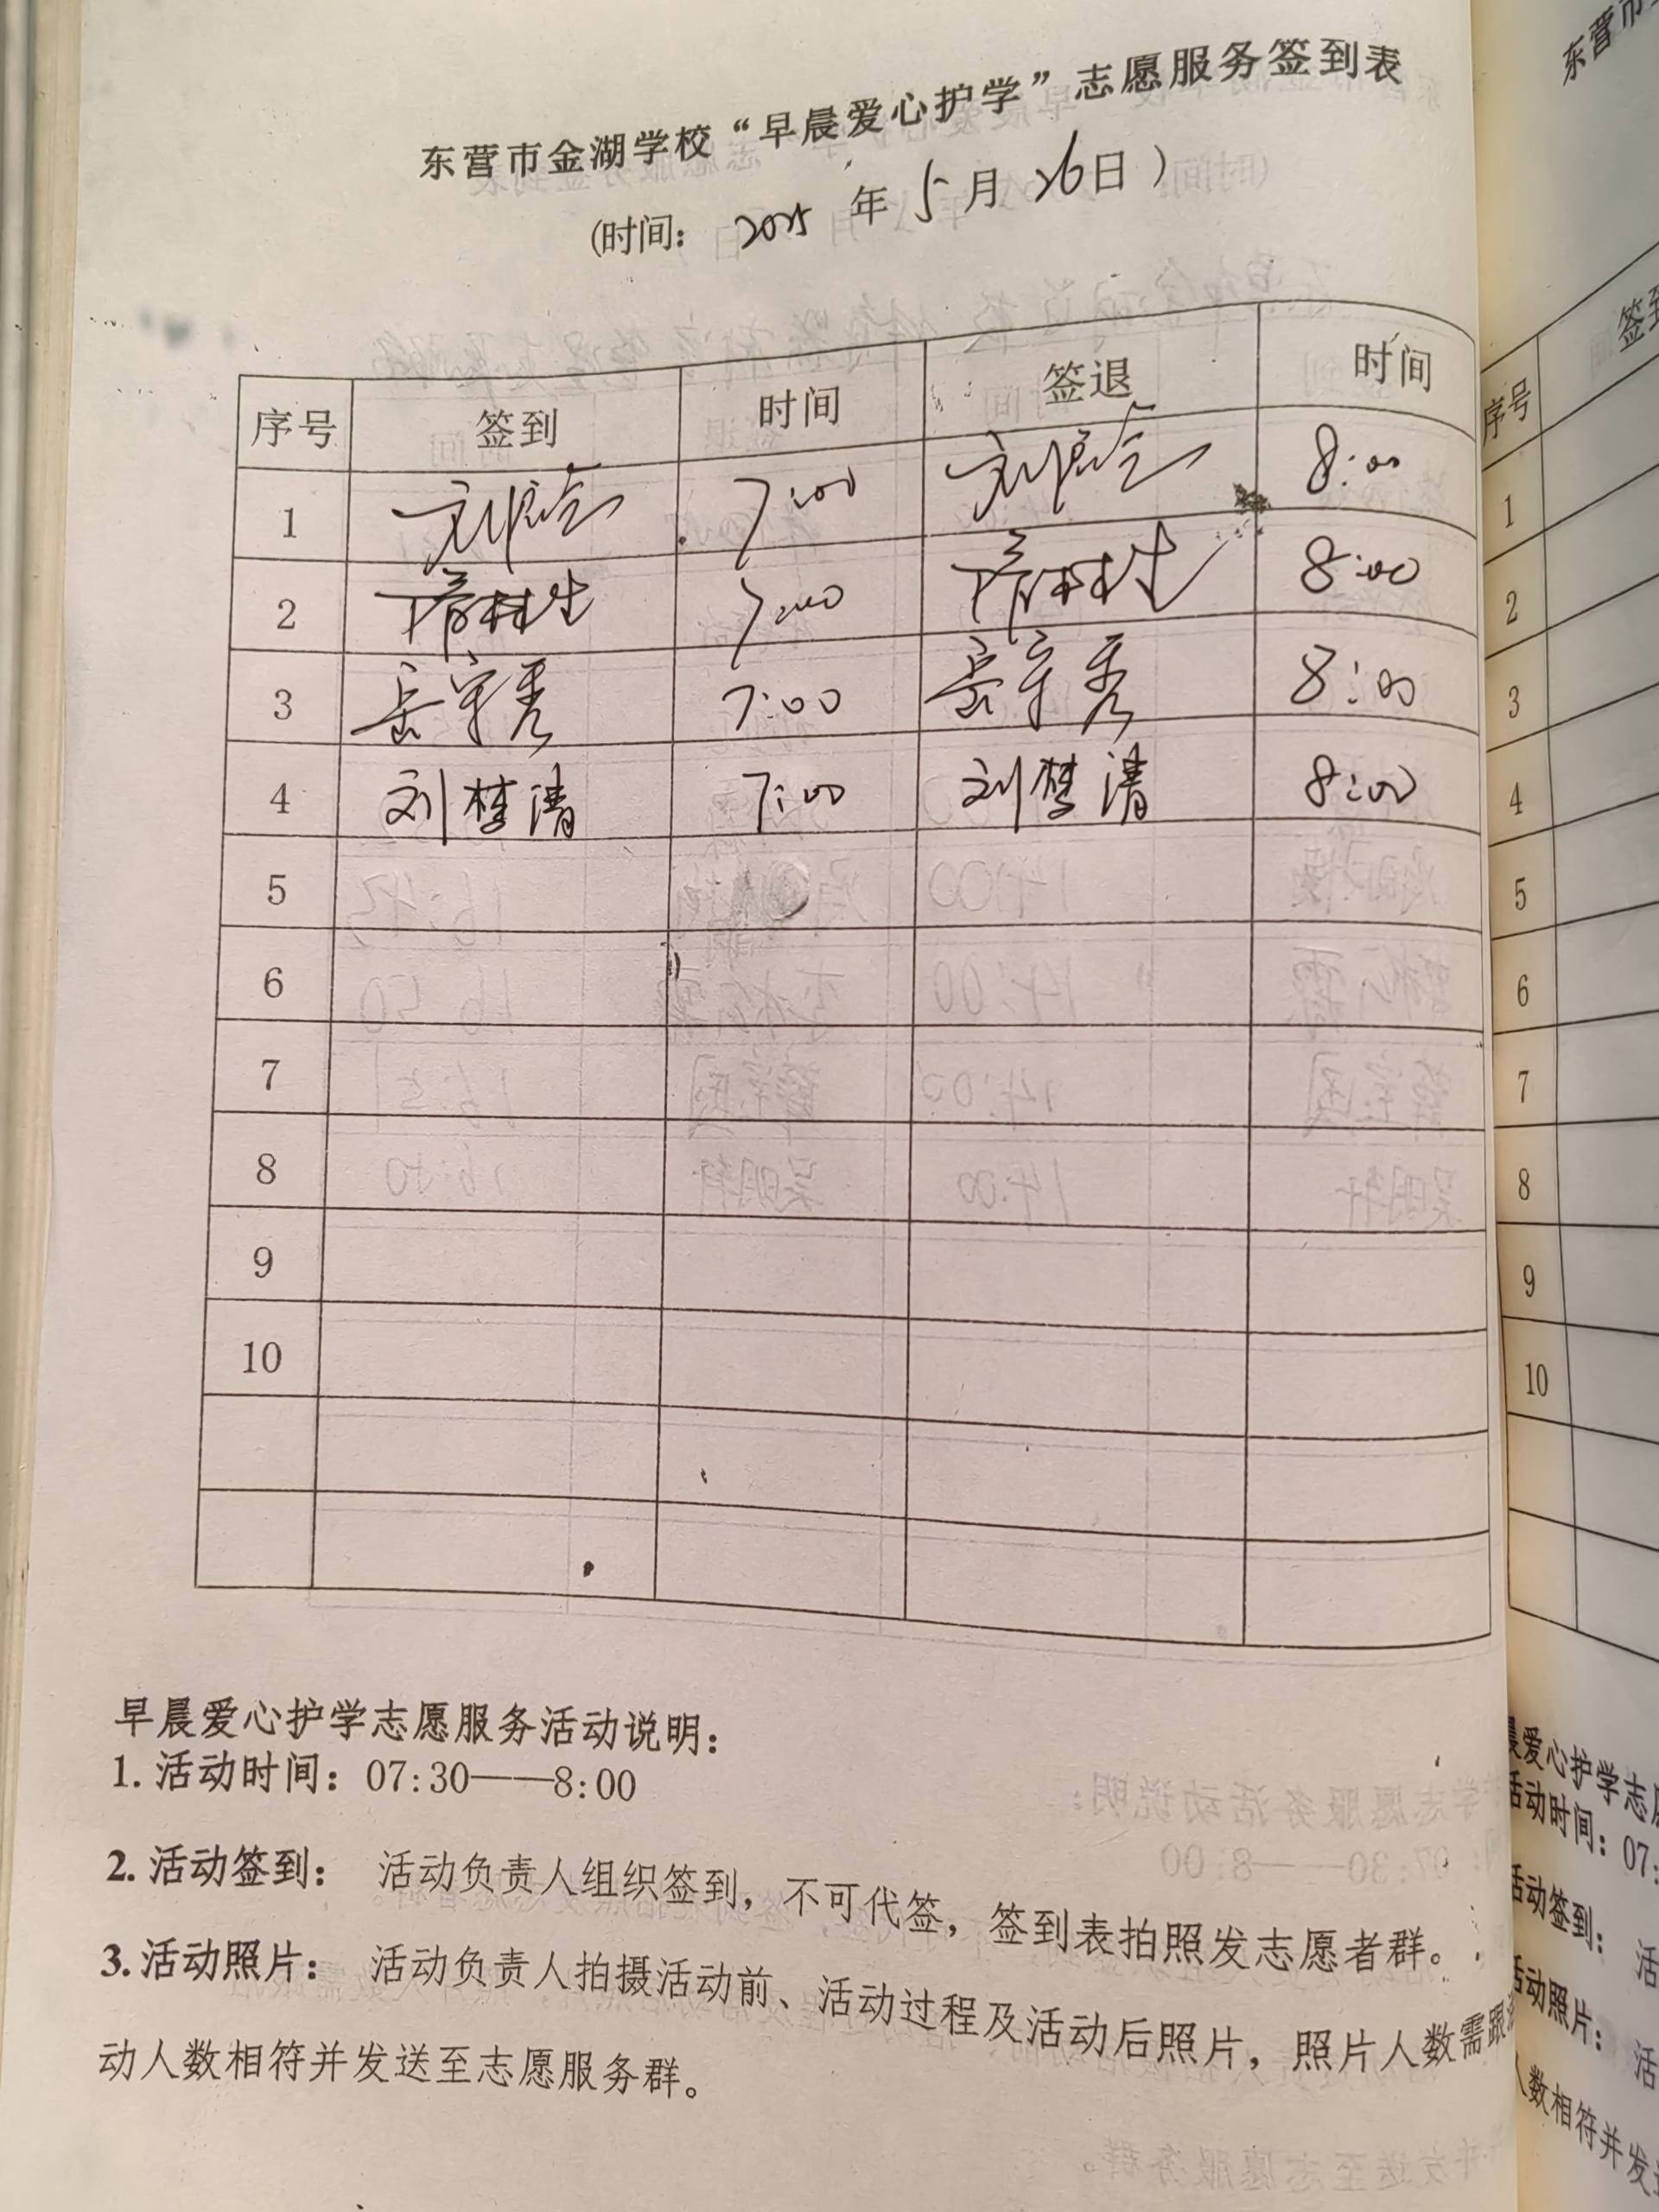 东营市金湖学校“早晨爱心护学”志愿服务签到表
(时间: 2025 年 5 月 26日 )
序号 签到 时间 签退 时间
1 7:00 8:00
2 7:00 8:00
3 岳守秀 7:00 岳守秀 8:00
4 刘梦清 7:00 刘梦清 8:00
5
6
7
8
9
10
早晨爱心护学志愿服务活动说明:
1. 活动时间: 07:30——8:00
2. 活动签到: 活动负责人组织签到, 不可代签, 签到表拍照发志愿者群。
3. 活动照片: 活动负责人拍摄活动前、活动过程及活动后照片, 照片人数需跟
动人数相符并发送至志愿服务群。
东营市
序号 签到
1
2
3
4
5
6
7
8
9
10
晨爱心护学志
活动时间: 07:
活动签到: 活
活动照片: 活
人数相符并发